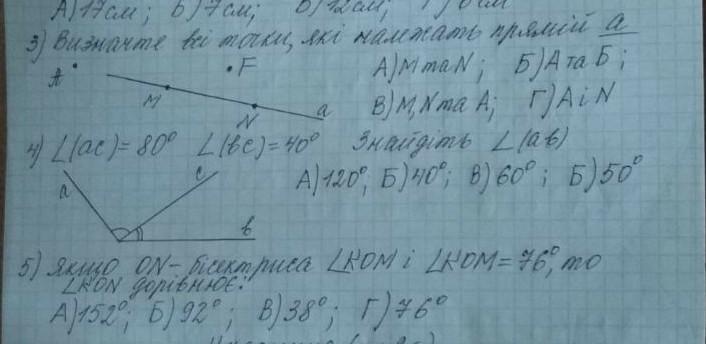 А) 17см; Б) 7см; В) 12см; Г)
3) Визначте всі точки, які належать прямій a
A F M N a
А) M та N; Б) A та Б;
В) M, N та A; Г) A і N
4) ∠(ac) = 80° ∠(bc) = 40° Знайдіть ∠(ab)
a c b
А) 120°; Б) 40°; В) 60°; Б) 50°
5) Якщо ON - бісектриса ∠KOM і ∠KOM = 76°, то
∠KON дорівнює:
А) 152°; Б) 92°; В) 38°; Г) 76°